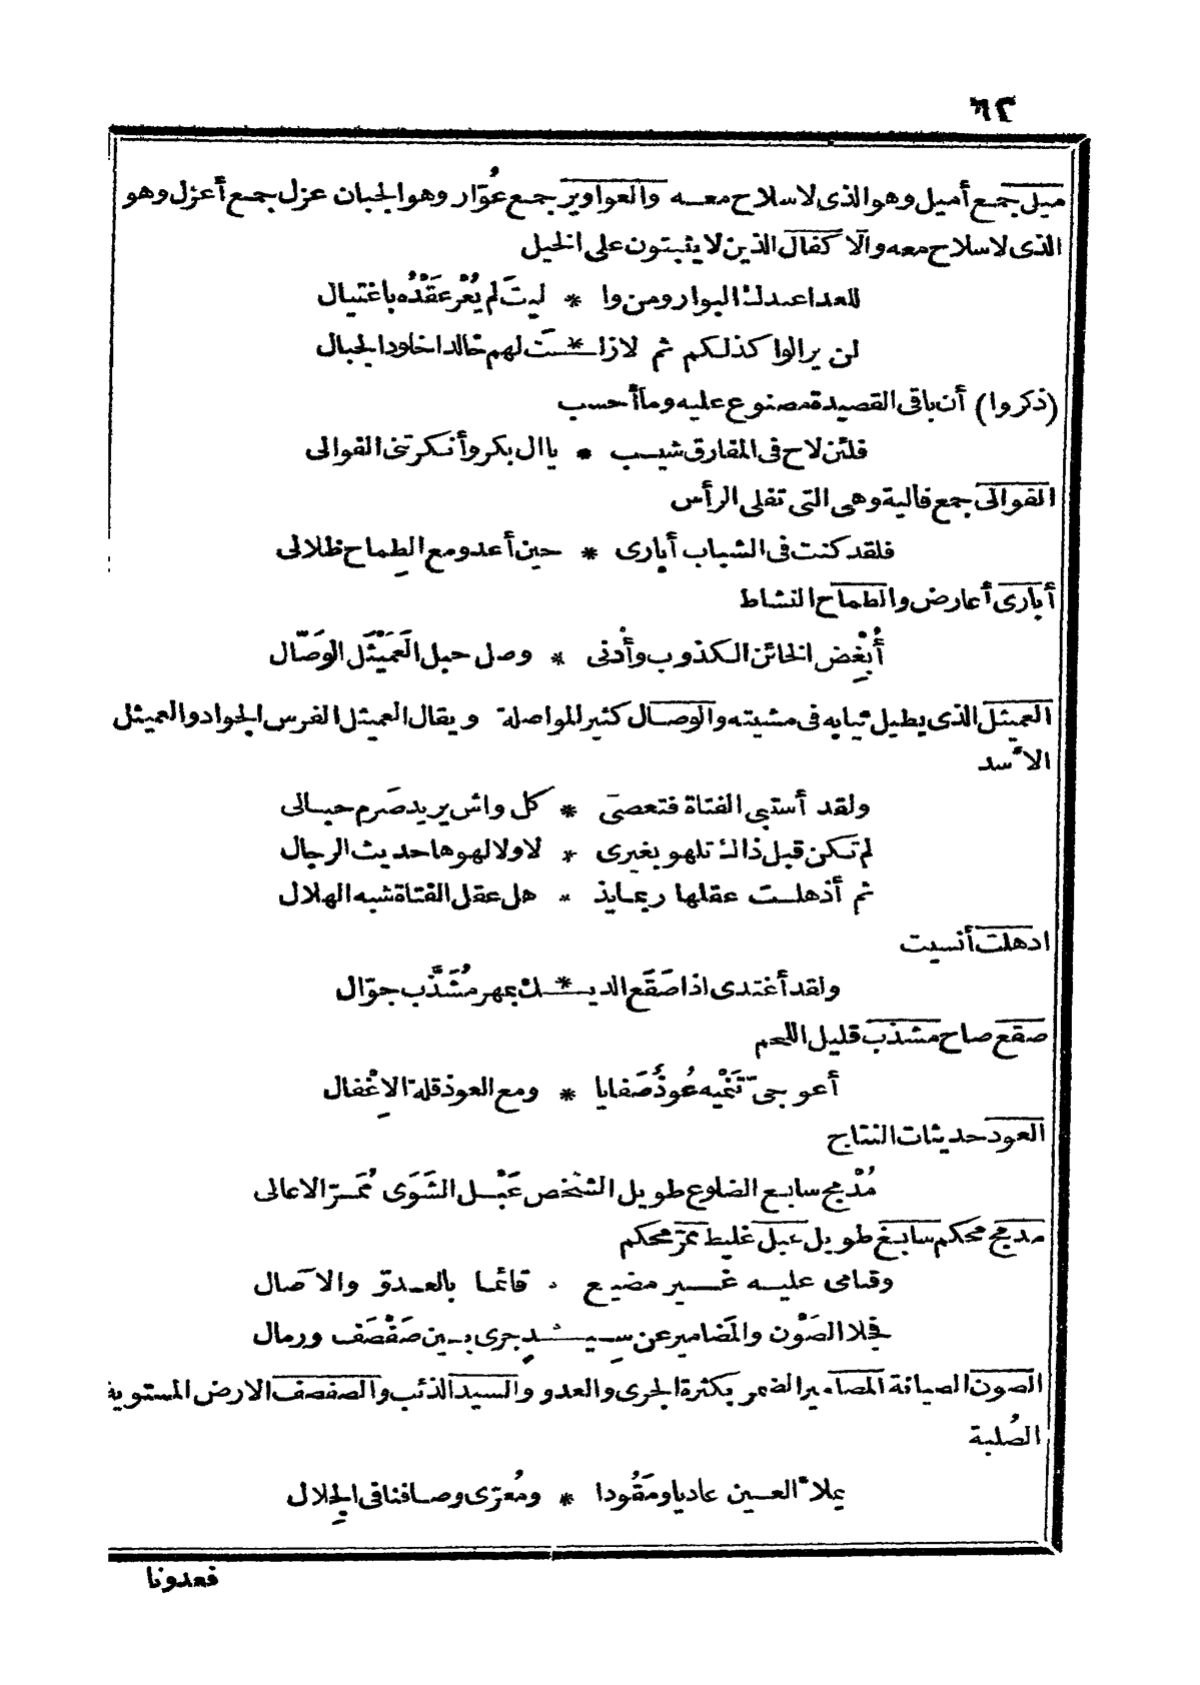 ٦٢
ميل جمع أميل وهو الذى لا سلاح معه والعواوير جمع عُوّار وهو الجبان عزل جمع أعزل وهو
الذى لا سلاح معه والا كفال الذين لا يثبتون على الخيل
للعدا عندك البوار ومن وا * ليتَ لم يُعْرَ عَقْدُه باغتيال
لن يزالوا كذلكم ثم لا زلـ * ـتَ لهم خالدا خلود الجبال
(ذكروا) أن باقى القصيدة مصنوع عليه وما أحسب
فلئن لاح فى المفارق شيب * يال بكر وأنكرتنى الفوالى
الفوالى جمع فالية وهى التى تفلى الرأس
فلقد كنت فى الشباب أبارى * حين أعدو مع الطِماح ظلالى
أبارى أعارض والطماح النشاط
أُبْغِض الخائن الكذوب وأُدنى * وصل حبل العَمَيْثَل الوَصّال
العميثل الذى يطيل ثيابه فى مشيته والوصال كثير المواصلة ويقال العميثل الفرس الجواد والعميثل
الأسد
ولقد أستبى الفتاة فتعصى * كل واش يريد صَرم حبالى
لم تكن قبل ذاك تلهو بغيرى * لا ولا لهوها حديث الرجال
ثم أذهلت عقلها ربما يذ * هل عقل الفتاة شبه الهلال
اذهلت أنسيت
ولقد أغتدى اذا صَقَع الديـ * ـك بمهر مُشَذَّب جوّال
صقع صاح مشذب قليل اللحم
أعوجىّ تَنْمِيه عُوذٌ صَفايا * ومع العوذ قلة الاِغْفال
العوذ حديثات النتاج
مُدْمج سابغ الضلوع طويل الشخص عَبْل الشَوَى مُمَرّ الاعالى
مدمج محكم سابغ طويل عبل غليظ ممرّ محكم
وقيامى عليه غير مضيع * قائما بالعدوّ والآصال
فجلا الصَوْن والمَضامير عن سِيـدٍ جرى بين صَفْصَف ورمال
الصون الصيانة المضامير الضمر بكثرة الجرى والعدو والسيد الذئب والصفصف الارض المستوية
الصُلبة
يملأ العين عاديا ومَقُودا * ومُعرّى وصافنا فى الجِلال
فعدونا